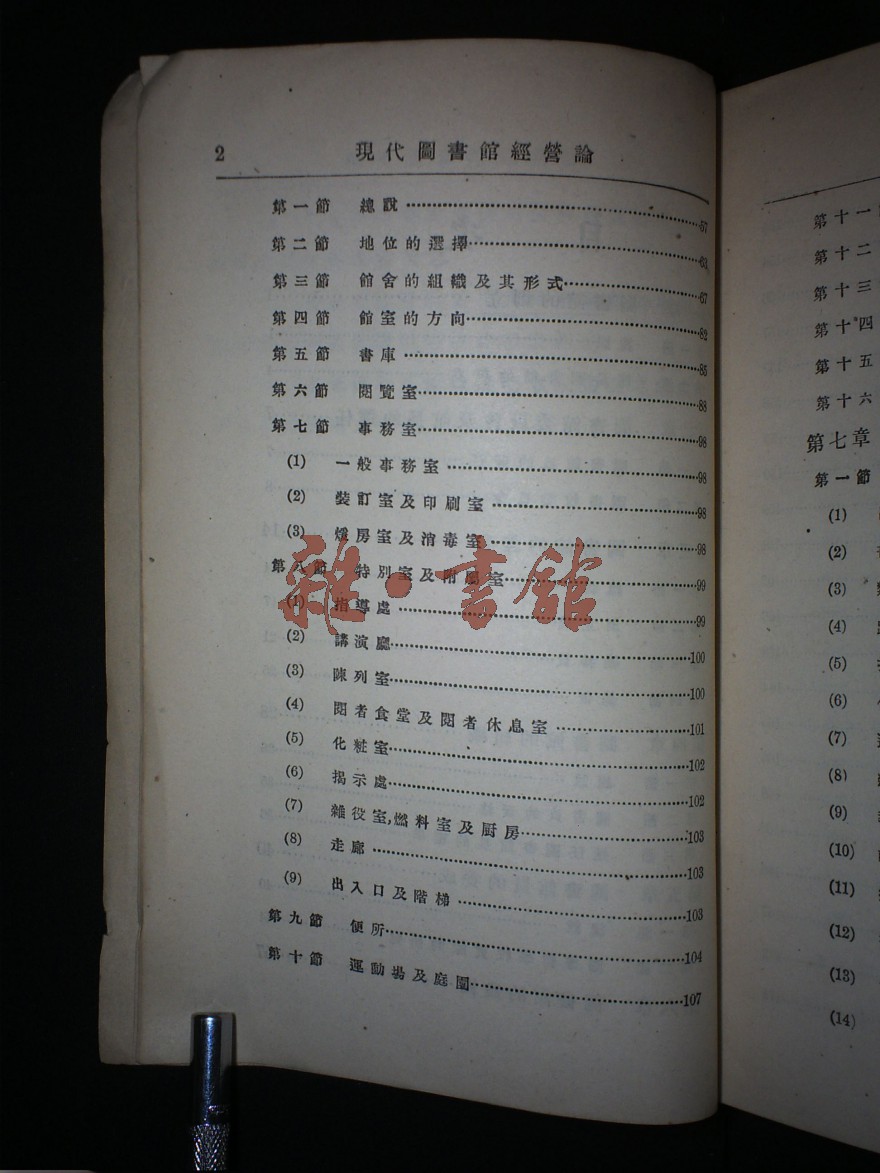 2 現代圖書館經營論
第一節 總說 57
第二節 地位的選擇 63
第三節 館舍的組織及其形式 67
第四節 館室的方向 82
第五節 書庫 85
第六節 閱覽室 88
第七節 事務室 98
(1) 一般事務室 98
(2) 裝訂室及印刷室 98
(3) 煖房室及消毒室 98
第八節 特別室及附屬室 99
(1) 指導處 99
(2) 講演廳 100
(3) 陳列室 100
(4) 閱者食堂及閱者休息室 101
(5) 化粧室 102
(6) 揭示處 102
(7) 雜役室,燃料室及厨房 103
(8) 走廊 103
(9) 出入口及階梯 103
第九節 便所 104
第十節 運動場及庭園 107
雜·書館
第十一
第十二
第十三
第十四
第十五
第十六
第七章
第一節
(1)
(2)
(3)
(4)
(5)
(6)
(7)
(8)
(9)
(10)
(11)
(12)
(13)
(14)